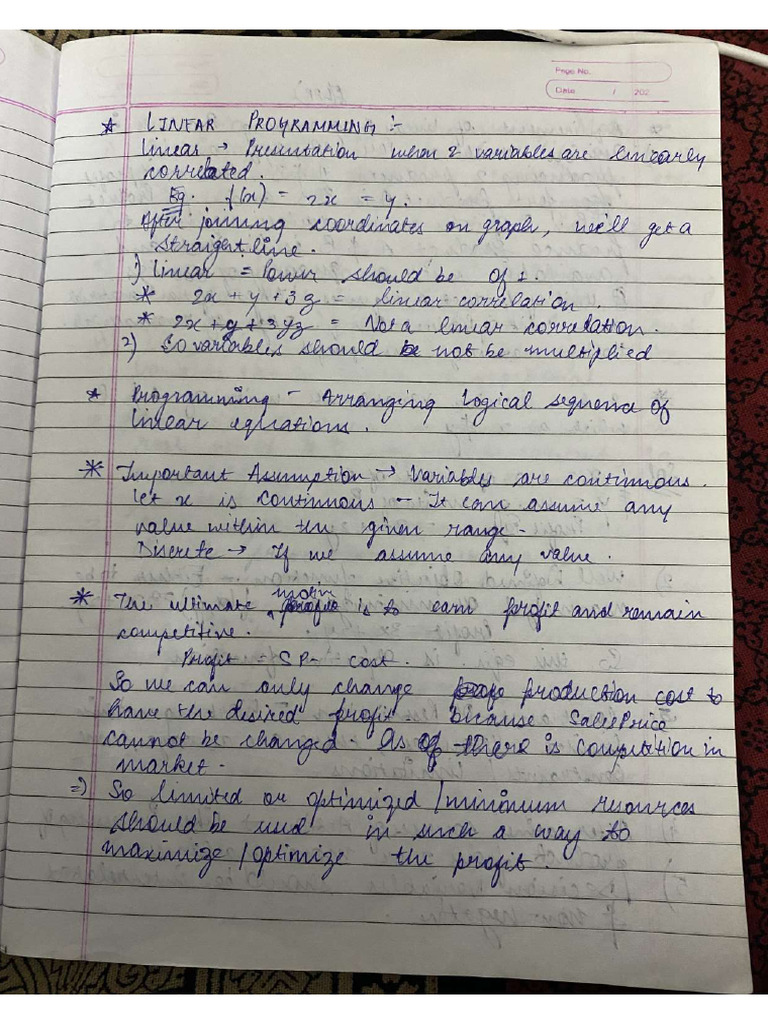 Page No.
Date / 202
* LINEAR PROGRAMMING :-
linear → Presentation when 2 variables are linearly
correlated.
Eg. f(x) = 2x = y.
After joining coordinates on graph, we'll get a
straight line.
1) linear = Power should be of 1.
* 2x + y + 3z = linear correlation.
* 2x + y + 3yz = Not a linear correlation.
2) So variables should not be multiplied
* Programming - Arranging logical sequence of
linear equations.
* Important Assumption → Variables are continuous.
let x is continuous - It can assume any
value within the given range.
Discrete → If we assume any value.
* The ultimate motive is to earn profit and remain
competitive.
Profit = SP - Cost.
So we can only change production cost to
have the desired profit because Sales Price
cannot be changed. As of there is competition in
market.
⇒) So limited or optimized / minimum resources
should be used in such a way to
maximize / optimize the profit.